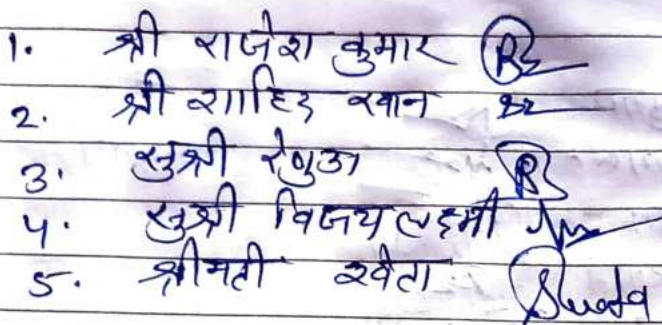 1. श्री राजेश कुमार
2. श्री शाहिद खान
3. सुश्री रेणुका
4. सुश्री विजयलक्ष्मी
5. श्रीमती श्वेता Shweta